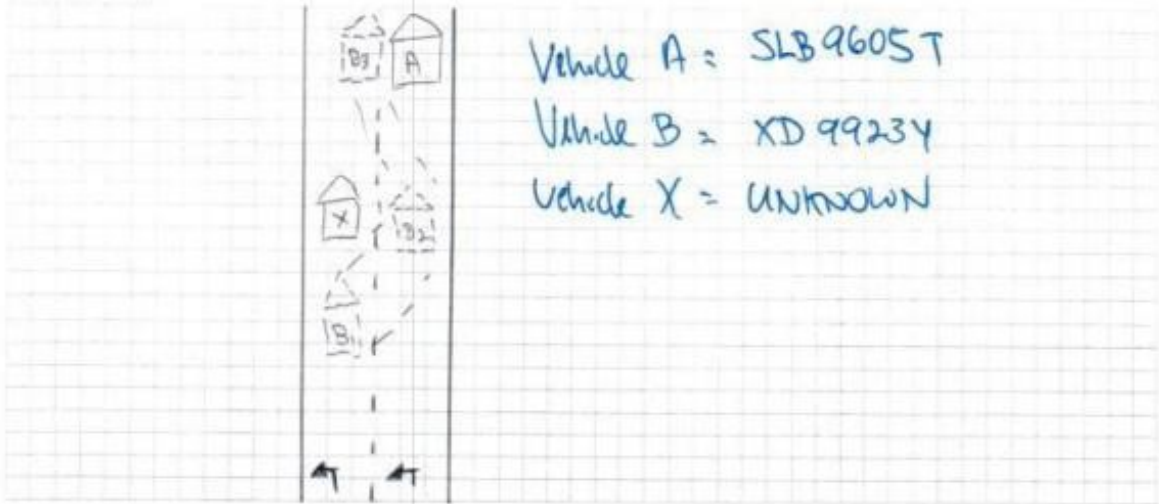 B3 A
Vehicle A = SLB9605T
Vehicle B = XD9923Y
X B2
Vehicle X = UNKNOWN
B1